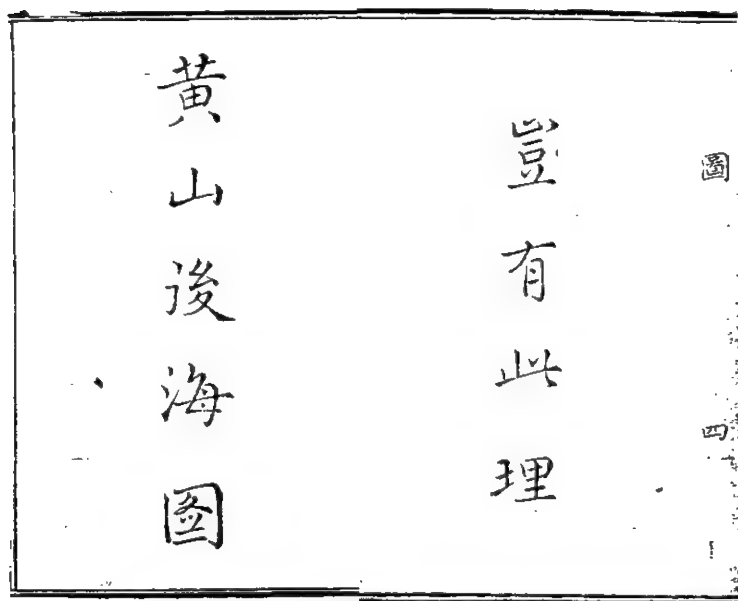 圖 四
豈有此理
黄山後海圖